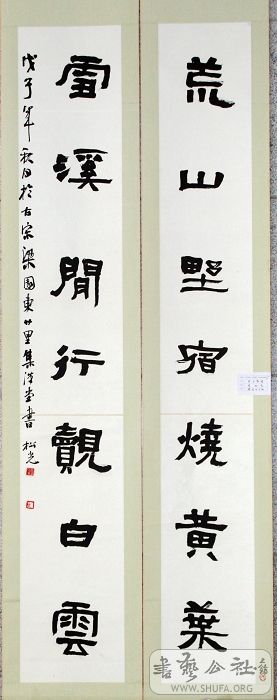 荒山野宿燒黃葉
雪溪閒行覿白雲
戊子年秋日於古宋梁園東廿里集堂書 松光
書藝公社
WWW.SHUFA.ORG